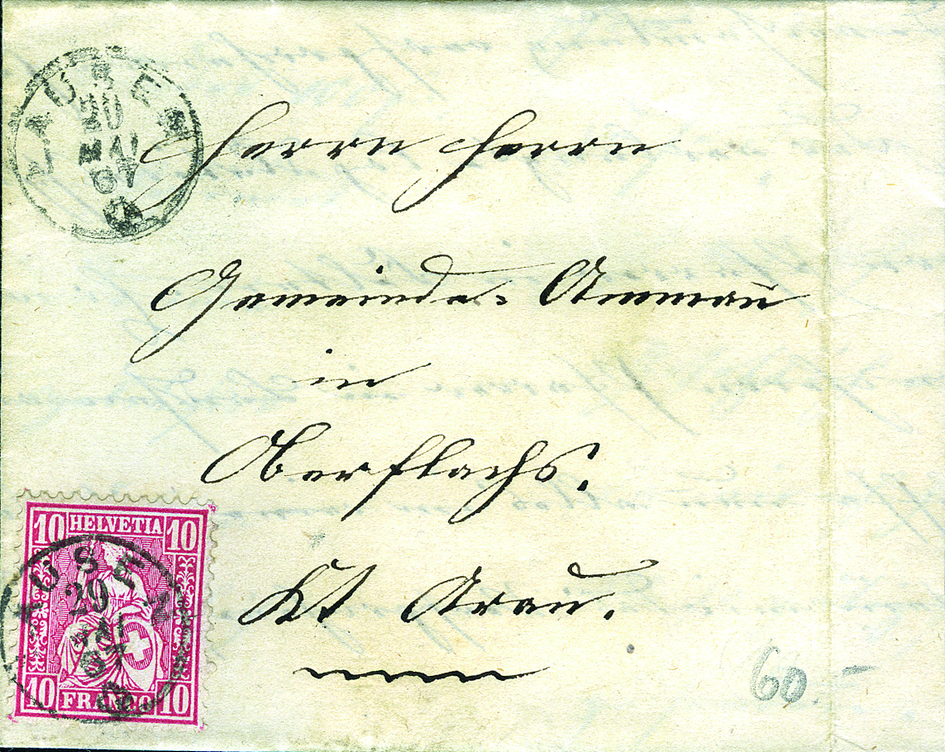 LAUSEN
20
MAI
67
Herrn Herrn
Gemeinde= Ammañ
in
Oberflachs.
Kt Arau.
10 HELVETIA 10
LAUSEN
20
MAI
67
10 FRANCO 10
60.-